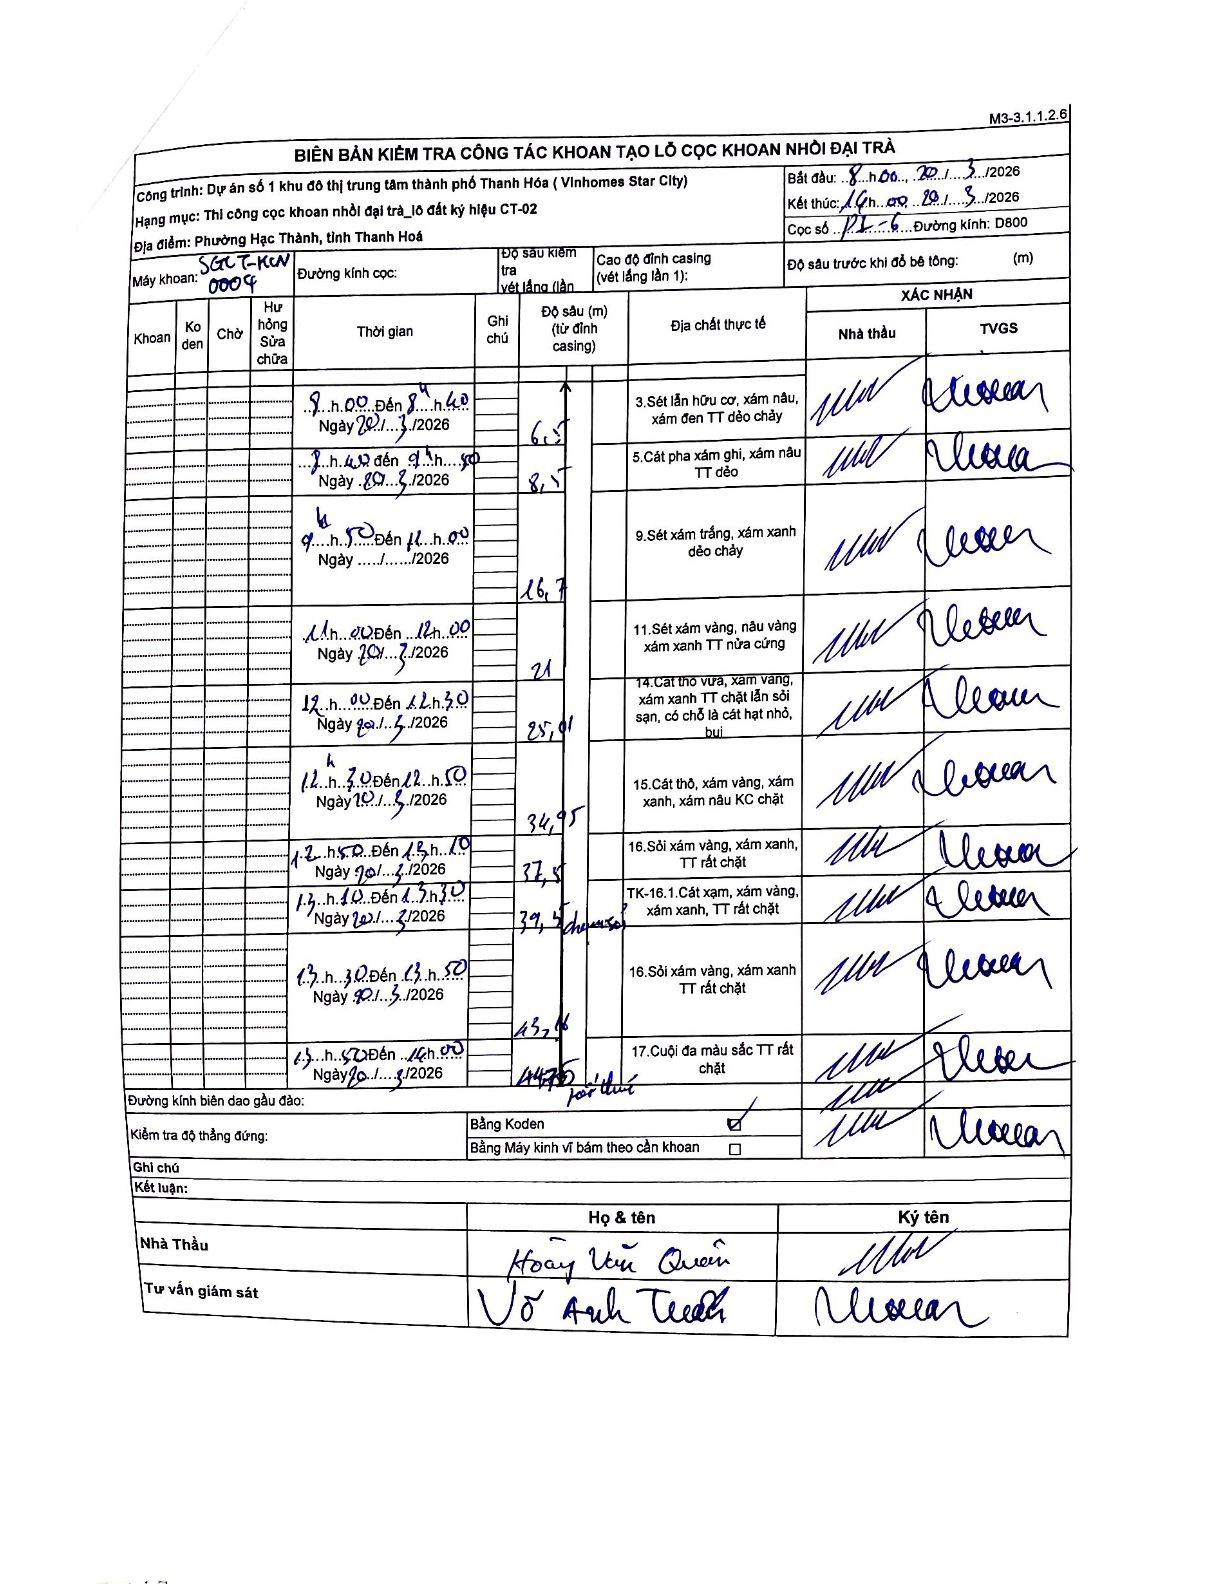 M3-3.1.1.2.6
BIÊN BẢN KIỂM TRA CÔNG TÁC KHOAN TẠO LỖ CỌC KHOAN NHỒI ĐẠI TRÀ
Công trình: Dự án số 1 khu đô thị trung tâm thành phố Thanh Hóa ( Vinhomes Star City)
Hạng mục: Thi công cọc khoan nhồi đại trà_lô đất ký hiệu CT-02
Địa điểm: Phường Hạc Thành, tỉnh Thanh Hoá
Bắt đầu: 8 h 00, 20/ 3 /2026
Kết thúc: 14 h 00, 20/ 3 /2026
Cọc số P1-6 Đường kính: D800
Máy khoan: SGCT-KCN 0009
Đường kính cọc:
Độ sâu kiểm tra vét lắng (lần
Cao độ đỉnh casing (vét lắng lần 1):
Độ sâu trước khi đổ bê tông: (m)
Khoan Ko den Chờ Hư hỏng Sửa chữa Thời gian Ghi chú Độ sâu (m) (từ đỉnh casing) Địa chất thực tế XÁC NHẬN
Nhà thầu TVGS
8 h 00 Đến 8 h 40
Ngày 20/ 3 /2026
6,5
3.Sét lẫn hữu cơ, xám nâu, xám đen TT dẻo chảy
8 h 40 đến 9 h 50
Ngày 20/ 3 /2026
8,5
5.Cát pha xám ghi, xám nâu TT dẻo
9 h 50 Đến 11 h 00
Ngày ...../....../2026
16,7
9.Sét xám trắng, xám xanh dẻo chảy
11 h 00 Đến 12 h 00
Ngày 20/ 3 /2026
21
11.Sét xám vàng, nâu vàng xám xanh TT nửa cứng
12 h 00 Đến 12 h 30
Ngày 20/ 3 /2026
25,01
14.Cát thô vừa, xám vàng, xám xanh TT chặt lẫn sỏi sạn, có chỗ là cát hạt nhỏ, bụi
12 h 30 Đến 12 h 50
Ngày 20/ 3 /2026
34,95
15.Cát thô, xám vàng, xám xanh, xám nâu KC chặt
12 h 50 Đến 13 h 10
Ngày 20/ 3 /2026
37,5
16.Sỏi xám vàng, xám xanh, TT rất chặt
13 h 10 Đến 13 h 30
Ngày 20/ 3 /2026
39,5
TK-16.1.Cát xạm, xám vàng, xám xanh, TT rất chặt
13 h 30 Đến 13 h 50
Ngày 20/ 3 /2026
43,16
16.Sỏi xám vàng, xám xanh TT rất chặt
13 h 50 Đến 14 h 00
Ngày 20/ 3 /2026
17.Cuội đa màu sắc TT rất chặt
Đường kính biên dao gầu đào:
Kiểm tra độ thẳng đứng:
Bằng Koden ☑
Bằng Máy kinh vĩ bám theo cần khoan ☐
Ghi chú
Kết luận:
Họ & tên Ký tên
Nhà Thầu Hoàng Văn Quân
Tư vấn giám sát Võ Anh Tuấn